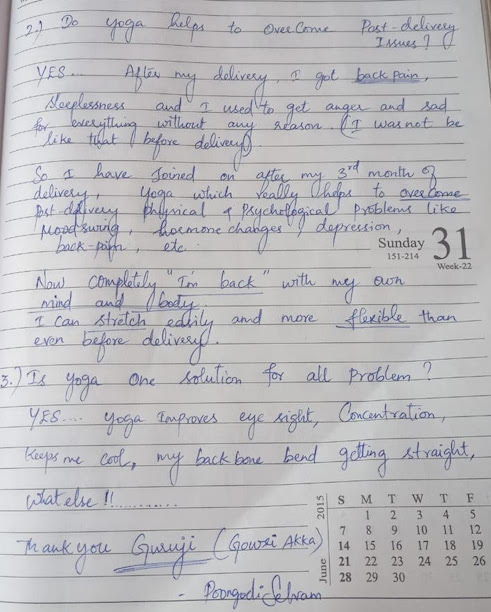 2.) Do yoga helps to OverCome Post-delivery
Issues ?
YES... After my delivery, I got back pain,
Sleeplessness and I used to get anger and sad
for everything without any reason. (I was not be
like that before delivery).
So I have Joined on after my 3rd month of
delivery, Yoga which really helps to overcome
Post-delivery physical & Psychological Problems like
Mood swing, hormone changes, depression,
back-pain, etc.
Sunday 31
151-214 Week-22
Now completely "I'm back" with my own
mind and body.
I can stretch easily and more flexible than
even before delivery.
3.) Is yoga One solution for all Problem ?
YES.... Yoga Improves eye sight, Concentration,
Keeps me cool, my back bone bend getting straight,
what else !!...........
Thank you Guruji (Gowri Akka)
- Poongodi Selvam
June 2015
S M T W T F
1 2 3 4 5
7 8 9 10 11 12
14 15 16 17 18 19
21 22 23 24 25 26
28 29 30